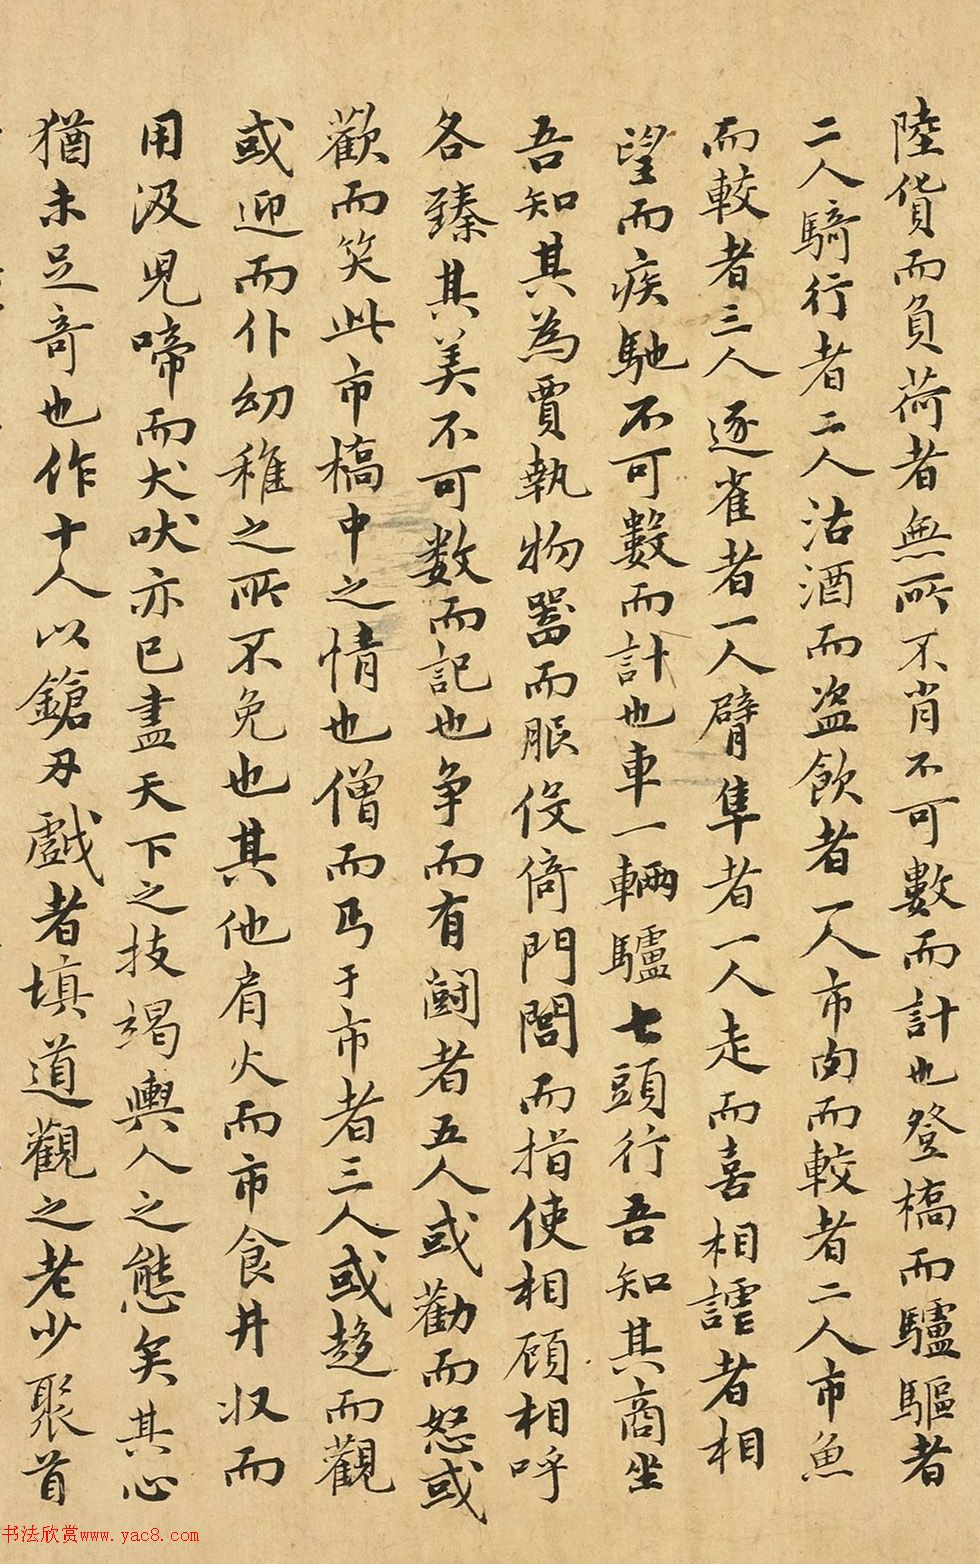 陸貨而負荷者無所不肖不可數而計也登橋而驢驅者
二人騎行者二人沽酒而盜飲者一人市肉而較者二人市魚
而較者三人逐雀者一人臂隼者一人走而喜相謔者相
望而疾馳不可數而計也車一輛驢七頭行吾知其商坐
吾知其為賈執物器而賑役倚門閭而指使相顧相呼
各臻其美不可数而記也争而有鬪者五人或勸而怒或
歡而笑此市橋中之情也僧而丐于市者三人或趍而觀
或迎而仆幼稚之所不免也其他肩火而市食井収而
用汲兒啼而犬吠亦已盡天下之技竭輿人之態矣其心
猶未足竒也作十人以鎗刀戲者填道觀之老少聚首
书法欣赏www.yac8.com